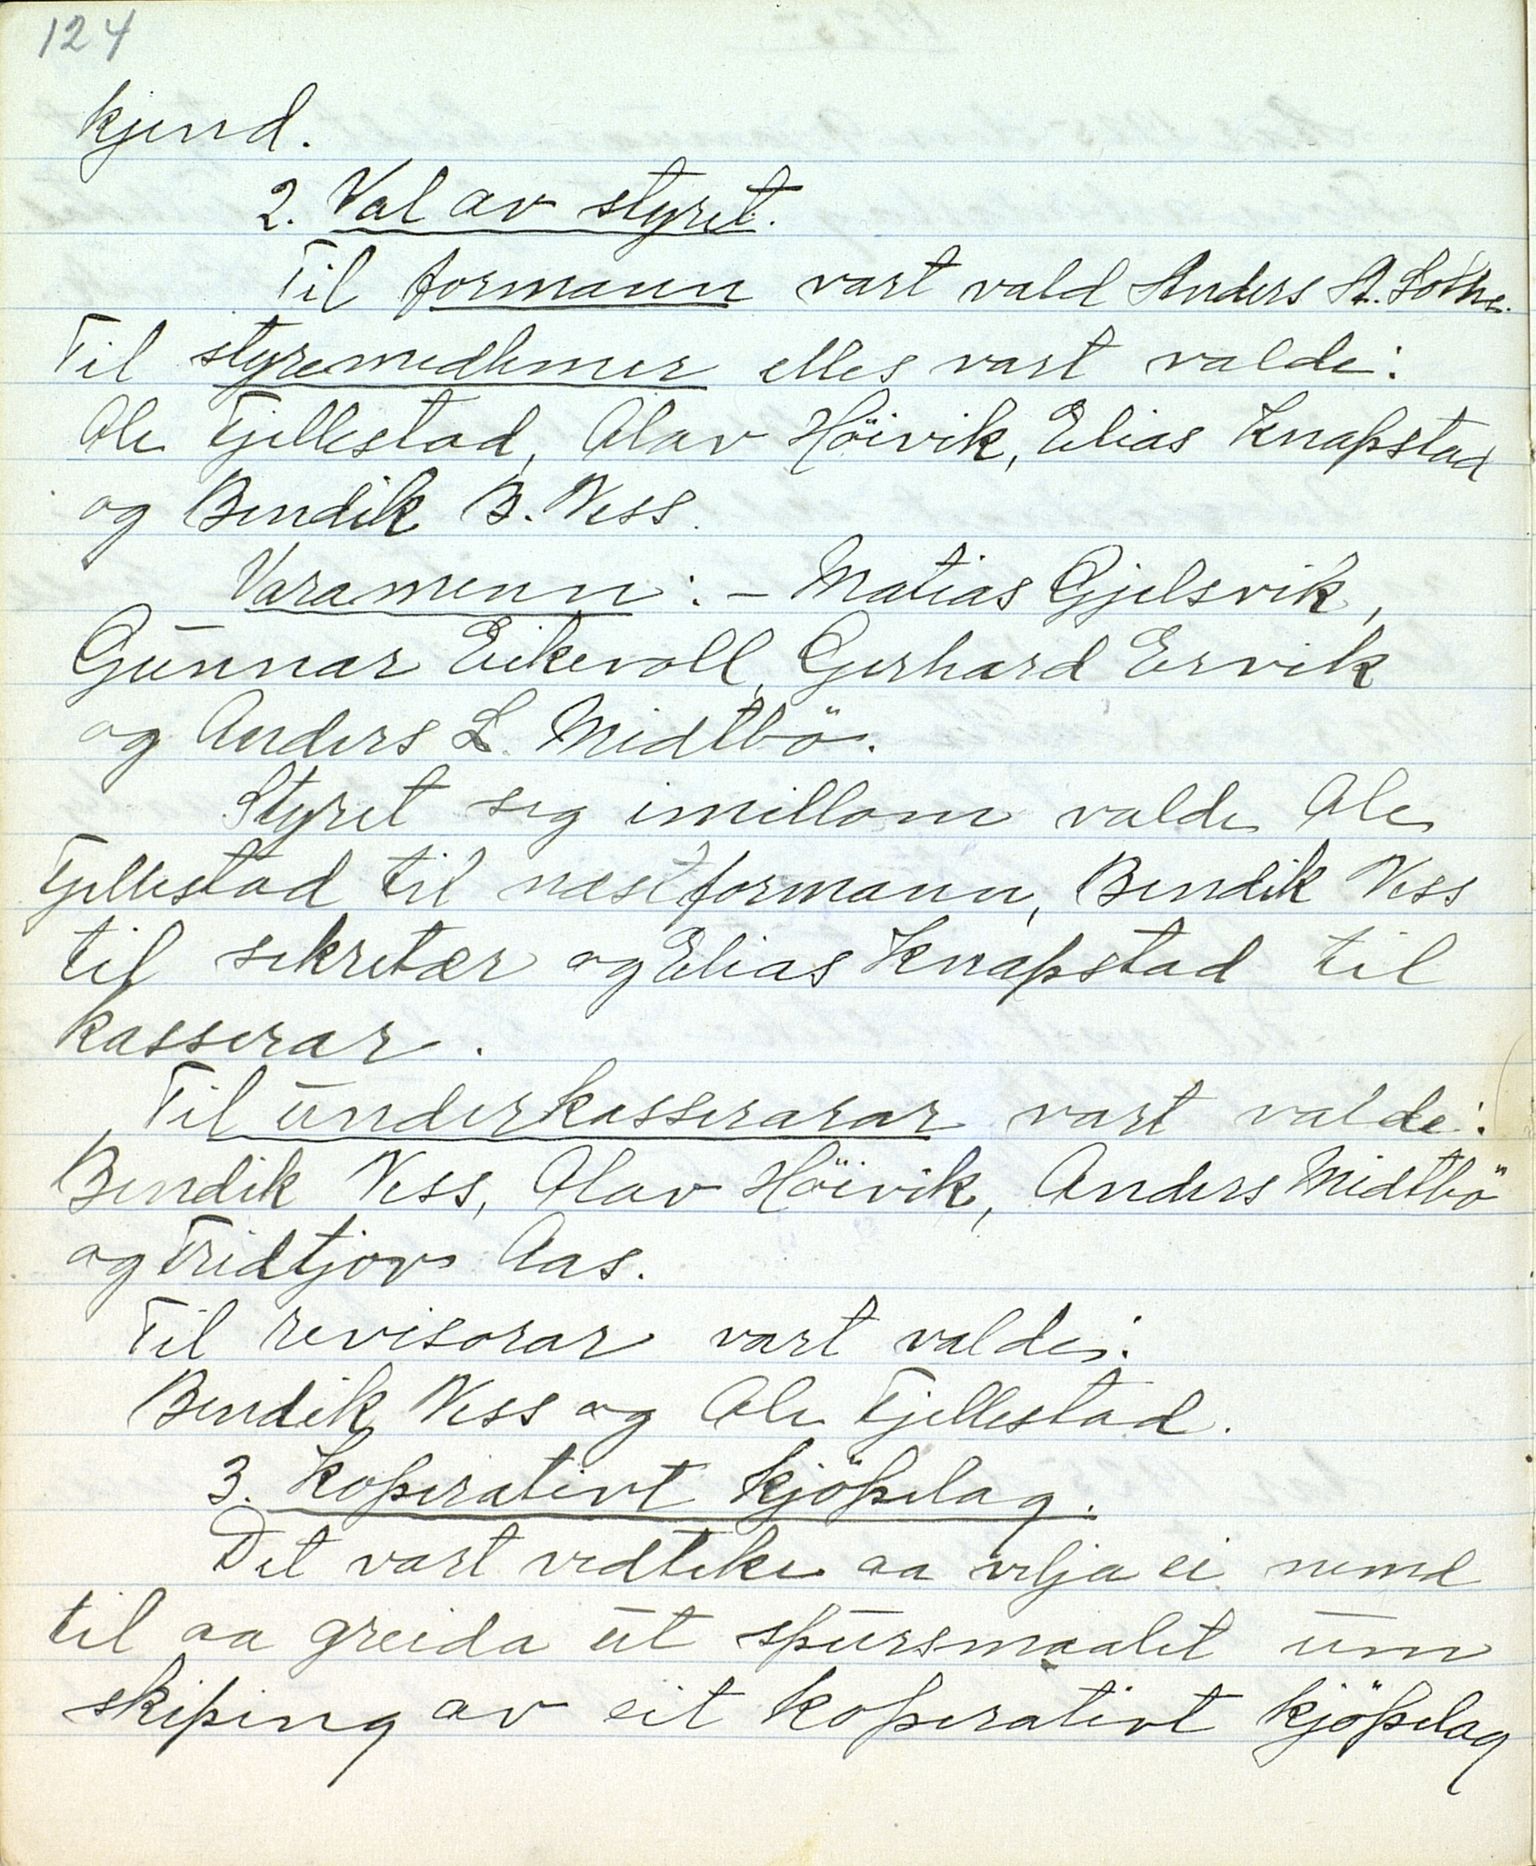 124
kjend.
2. Val av styret.
Til formann vart vald Anders A. Lothe.
Til styremedlemer elles vart valde:
Ole Fjellestad, Olav Höivik, Elias Knapstad
og Bendik B. Ness.
Varamenn: – Matias Gjelsvik,
Gunnar Eikevoll, Gerhard Ervik
og Anders L. Midtbö.
Styret sig imillom valde Ole
Fjellestad til næstformann, Bendik Ness
til sekretær og Elias Knapstad til
kasserar.
Til underkasserarar vart valde:
Bendik Ness, Olav Höivik, Anders Midtbö
og Fridtjov Aas.
Til revisorar vart valde:
Bendik Ness og Ole Fjellestad.
3. Koperativt kjöpelag.
Det vart vedteke aa velja ei nemd
til aa greida ut spursmaalet um
skiping av eit koperativt kjöpelag